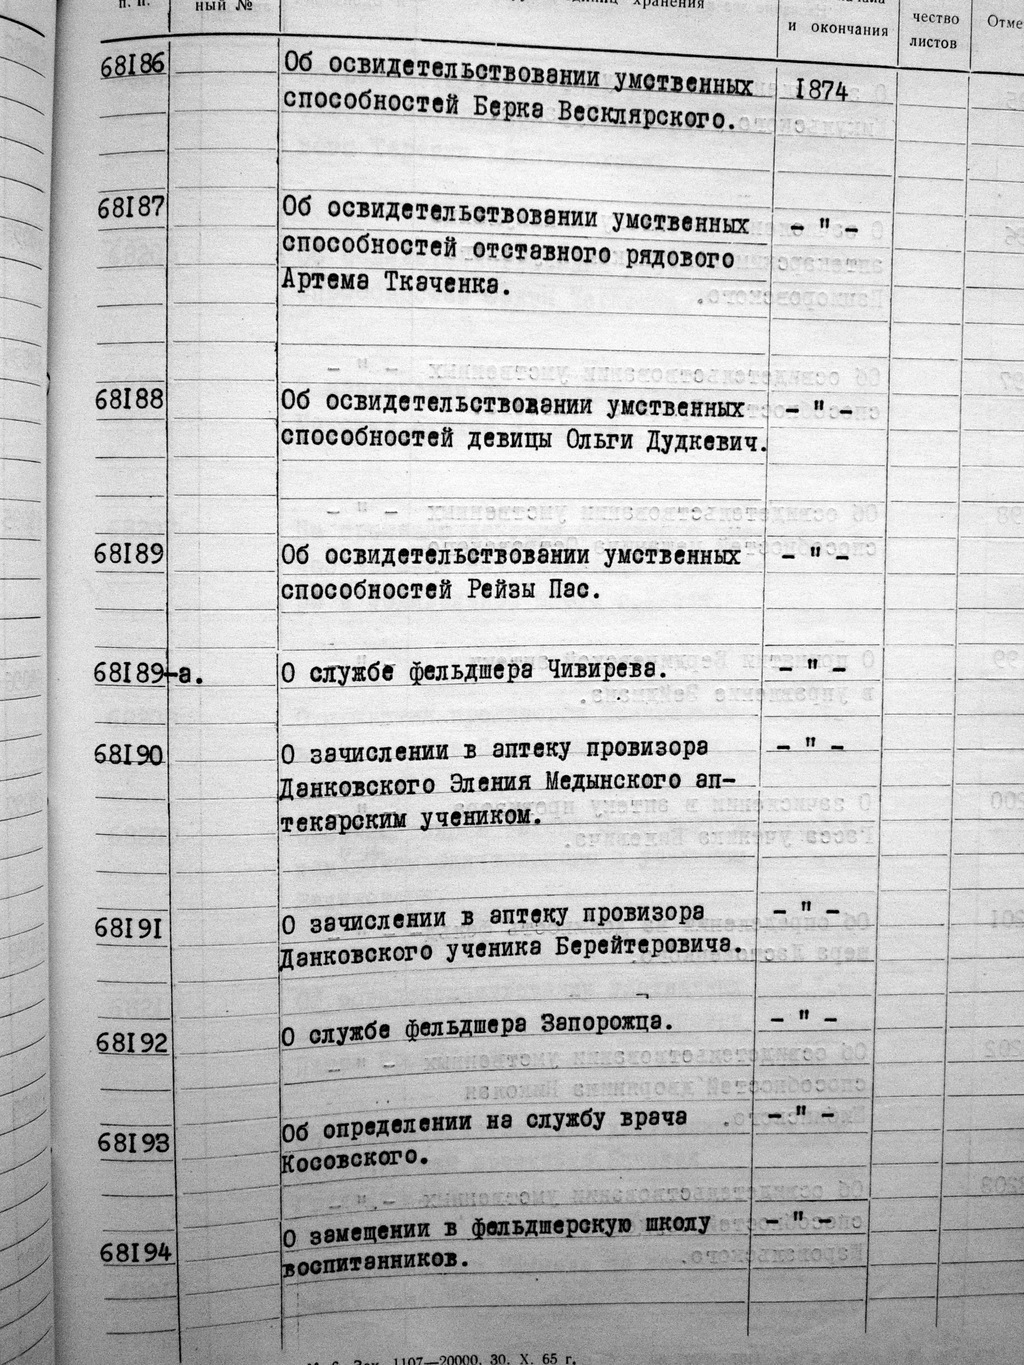 п. п.
ный №
хранения
и окончания
чество
листов
Отме
68186
Об освидетельствовании умственных
способностей Берка Весклярского.
1874
68187
Об освидетельствовании умственных
способностей отставного рядового
Артема Ткаченка.
- " -
68188
Об освидетельствовании умственных
способностей девицы Ольги Дудкевич.
- " -
68189
Об освидетельствовании умственных
способностей Рейзы Пас.
- " -
68189-а.
О службе фельдшера Чивирева.
- " -
68190
О зачислении в аптеку провизора
Данковского Эления Медынского ап-
текарским учеником.
- " -
68191
О зачислении в аптеку провизора
Данковского ученика Берейтеровича.
- " -
68192
О службе фельдшера Запорожца.
- " -
68193
Об определении на службу врача
Косовского.
- " -
68194
О замещении в фельдшерскую школу
воспитанников.
- " -
Зак. 1107—20000. 30. X. 65 г.